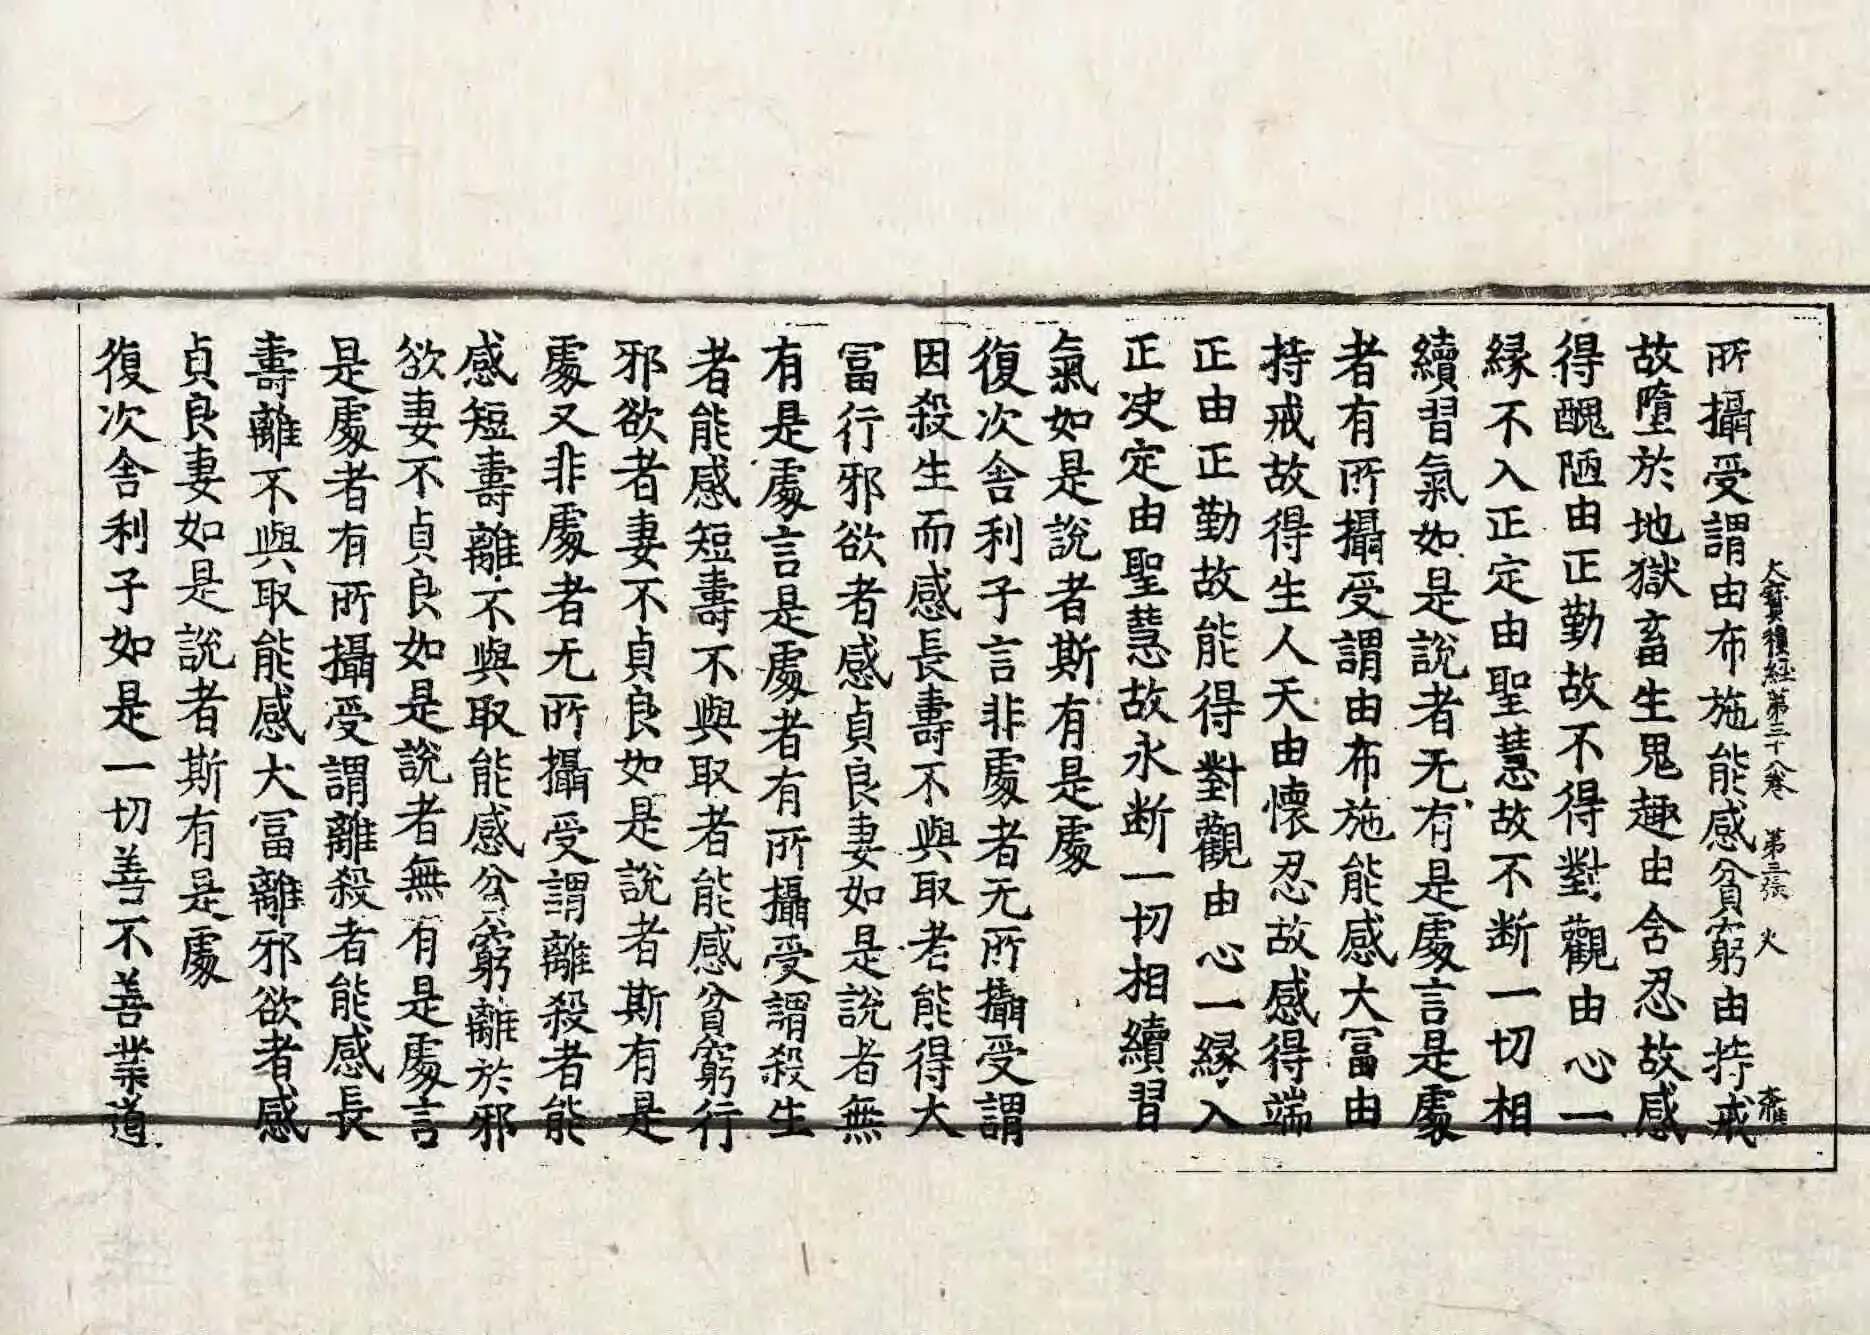 大寳積經第三十八卷 第三張 火
所攝受謂由布施能感貧窮由持戒
故墮於地獄畜生鬼趣由含忍故感
得醜陋由正勤故不得對觀由心一
縁不入正定由聖慧故不断一切相
續習氣如是說者无有是處言是處
者有所攝受謂由布施能感大冨由
持戒故得生人天由懷忍故感得端
正由正勤故能得對觀由心一縁入
正决定由聖慧故永断一切相續習
氣如是說者斯有是處
復次舎利子言非處者无所攝受謂
因殺生而感長壽不與取者能得大
冨行邪欲者感貞良妻如是說者無
有是處言是處者有所攝受謂殺生
者能感短壽不與取者能感貧窮行
邪欲者妻不貞良如是說者斯有是
處又非處者无所攝受謂離殺者能
感短壽離不與取能感貧窮離於邪
欲妻不貞良如是說者無有是處言
是處者有所攝受謂離殺者能感長
壽離不與取能感大冨離邪欲者感
貞良妻如是說者斯有是處
復次舎利子如是一切善不善業道